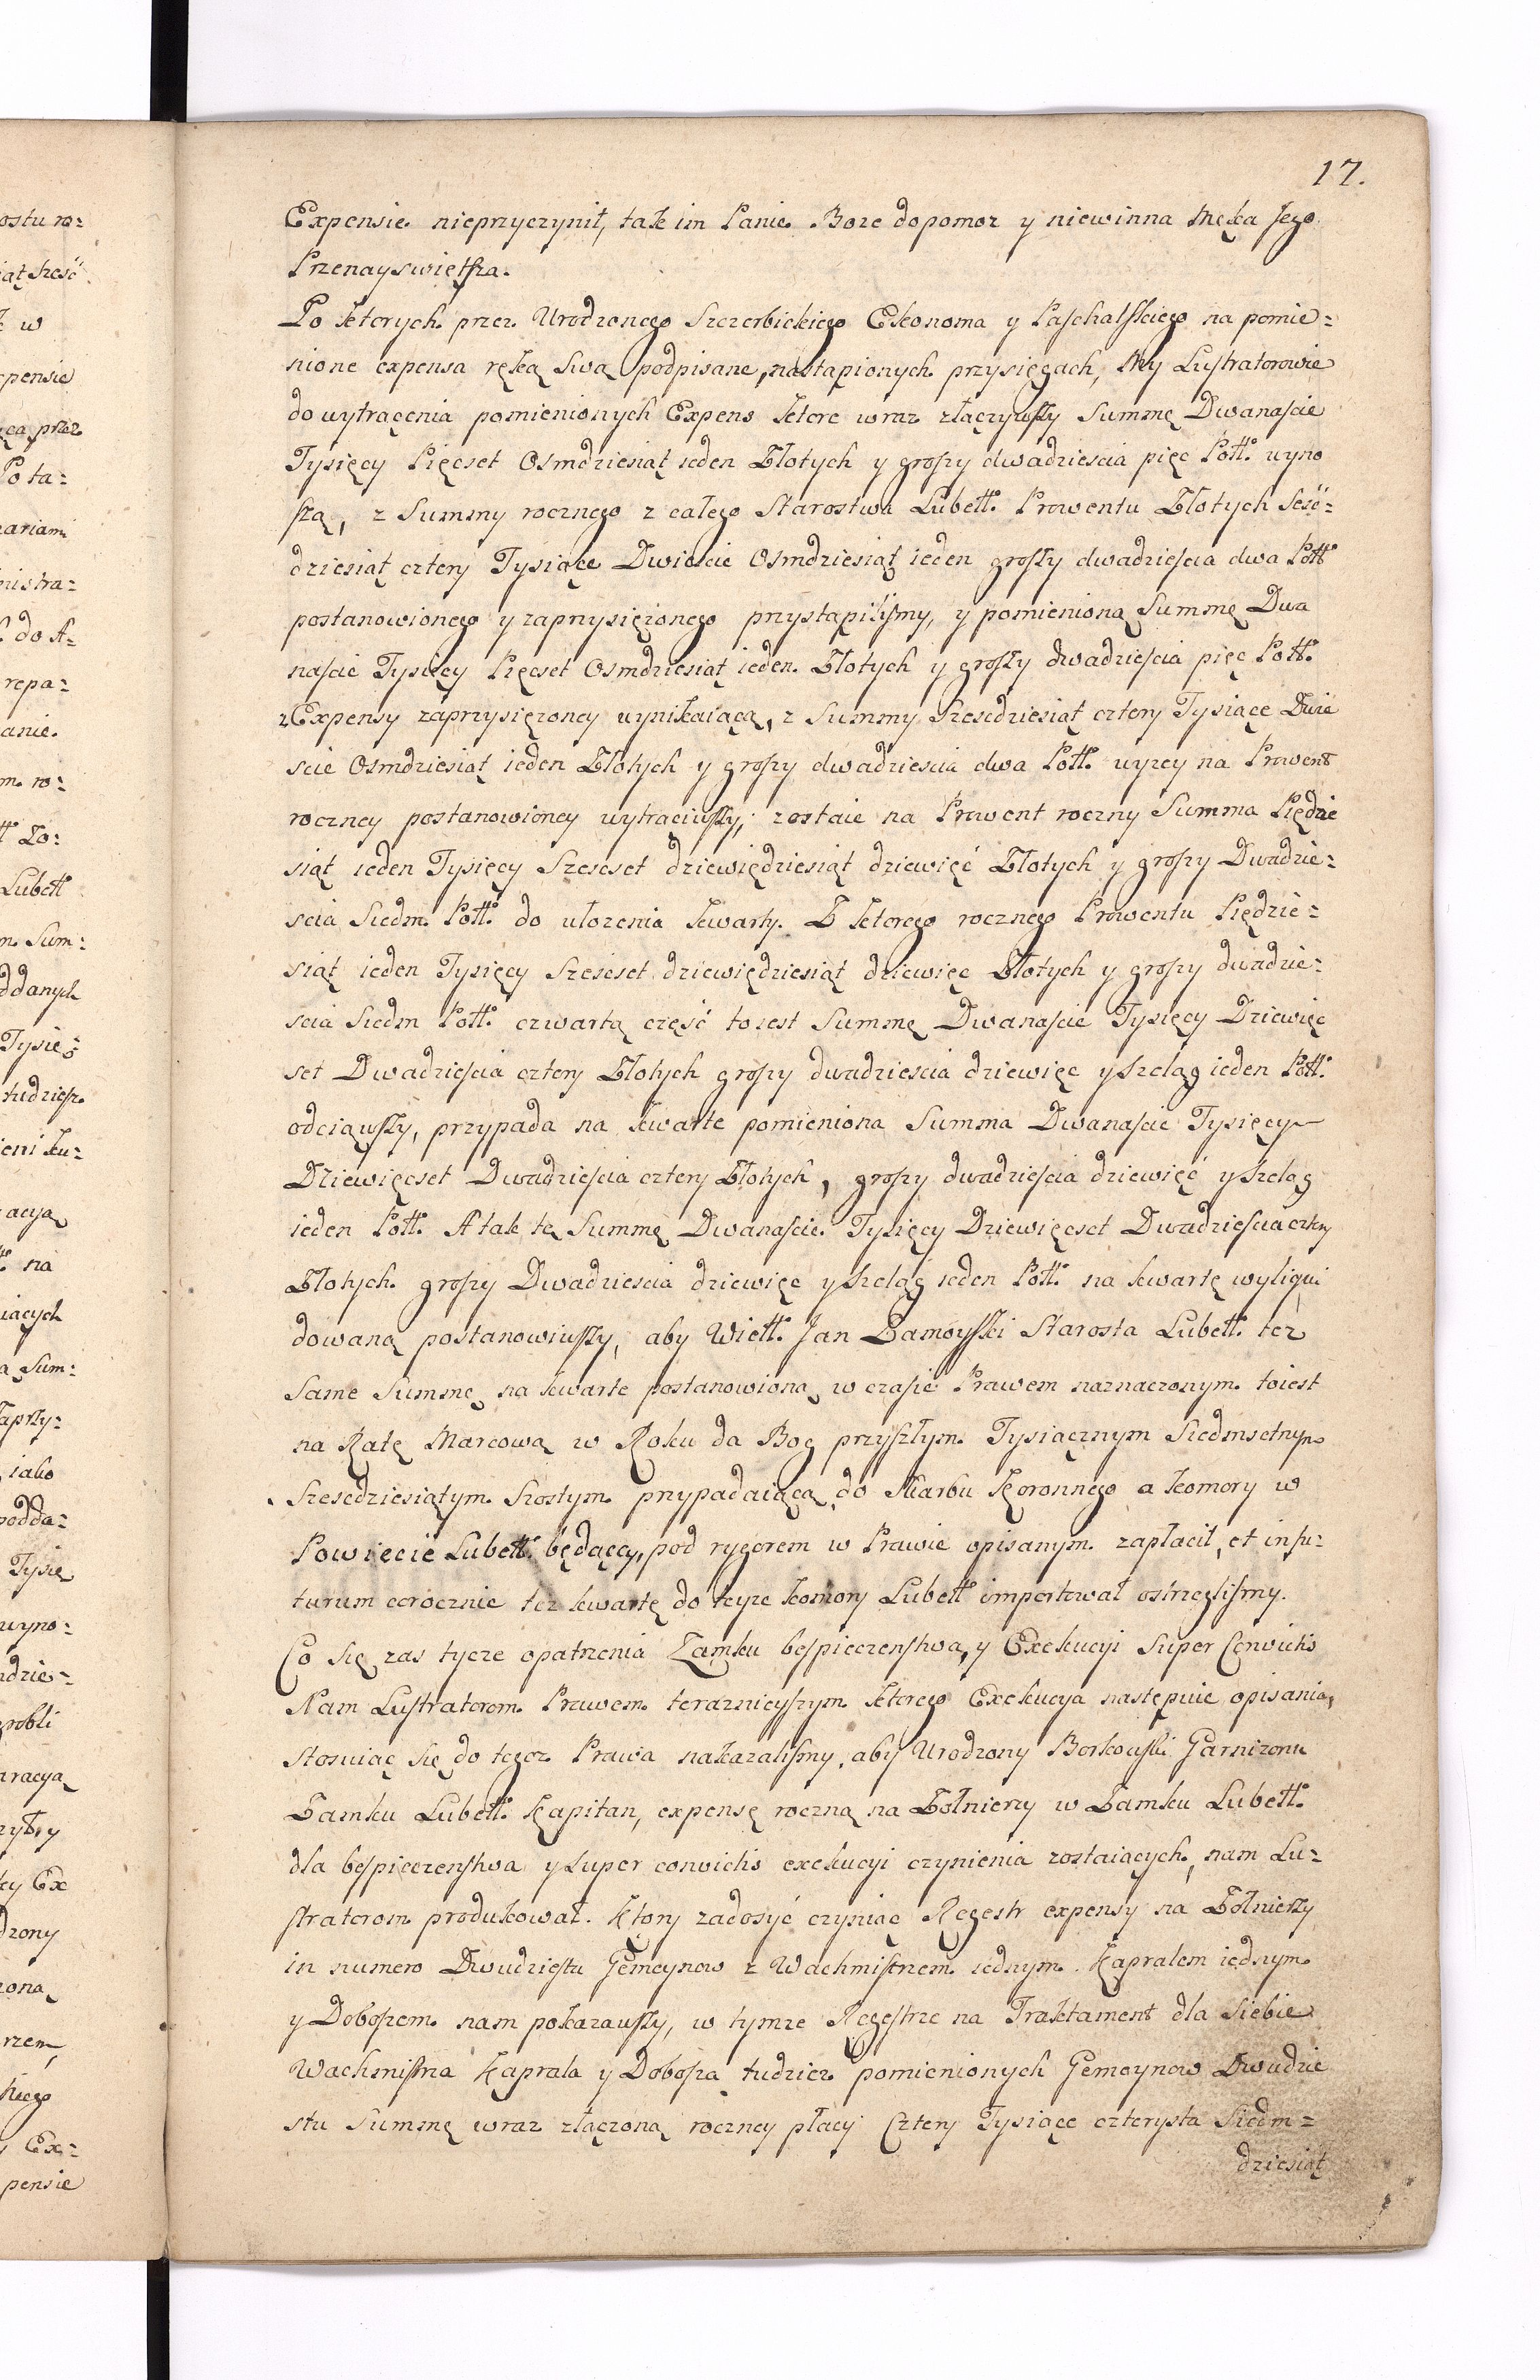 17.
Expensie nieprzyczynił, tak im Panie Boze dopomoz y niewinna Męka Jego
Przenayswiętsza.
Po ktorych przez Urodzonego Szczerbickiego Ekonoma y Paschalskiego na pomie=
nione expensa ręką swą podpisane, nastąpionych przysięgach, My Lustratorowie
do wytrącenia pomienionych Expens ktore wraz złączywszy Summę Dwanascie
Tysięcy Pięcset Osmdziesiąt ieden Złotych y groszy dwadziescia pięc Poll. wyno
szą, z Summy rocznego z całego Starostwa Lubell. Prowentu Złotych Seść=
dziesiąt cztery Tysiące Dwieście Osmdziesiąt ieden groszy dwadziescia dwa Poll
postanowionego y zaprzysięzonego przystąpiliśmy, y pomienioną Summę Dwa
nascie Tysięcy Pięcset Osmdziesiąt ieden Złotych y groszy dwadziescia pięc Poll.
z Expensy zaprzysięzoney wynikaiącą, z Summy Szescdziesiąt cztery Tysiące Dwie
scie Osmdziesiąt ieden Złotych y groszy dwadziescia dwa Poll. wyzey na Prowent
roczney postanowioney wytrąciwszy, zostaie na Prowent roczny Summa Piędzie
siąt ieden Tysięcy Szescset dziewiędziesiąt dziewięć Złotych y groszy Dwadzie=
scia Siedm Poll. do ułozenia kwarty. Z ktorego rocznego Prowentu Piędzie=
siąt ieden Tysięcy Szescset dziewiędziesiąt dziewięc Złotych y groszy dwadzie=
scia Siedm Poll. czwartą część to iest Summę Dwanascie Tysięcy Dziewięc
set Dwadziescia cztery Złotych groszy dwadziescia dziewięc y szeląg ieden Poll.
odciąwszy, przypada na kwarte pomieniona Summa Dwanascie Tysięcy
Dziewięcset Dwadziescia cztery Złotych, groszy dwadziescia dziewięć y szeląg
ieden Poll. A tak tę Summę Dwanascie Tysięcy Dziewięcset Dwadziescia cztery
Złotych groszy Dwadziescia dziewięc y szeląg ieden Poll. na kwartę wyliqui
dowaną postanowiwszy, aby Wiell. Jan Zamoyski Starosta Lubell. tęż
same Summę na kwarte postanowioną w czasie Prawem naznaczonym toiest
na Ratę Marcową w Roku da Bog przyszłym Tysiącznym Siedmsetnym
Szescdziesiątym Szostym przypadaiącą do Skarbu Koronnego a komory w
Powiecie Lubell. będącey, pod rygorem w Prawie opisanym zapłacił, et in fu=
turum corocznie tez kwartę do teyze komory Lubell importował ostrzegliśmy.
Co się zas tycze opatrzenia Zamku bespieczenstwa, y Exekucyi super Convictis
Nam Lustratorom Prawem teraznieyszym ktorego Exekucya następuie opisania,
stosuiąc się do tegoz Prawa nakazaliśmy, aby Urodzony Borkowski Garnizonu
Zamku Lubell. Kapitan, expensę roczną na Zołnierzy w Zamku Lubell.
dla bespieczenstwa y super convictis exekucyi czynienia zostaiących, nam Lu=
stratorom produkował. Ktory zadosyć czyniąc Regestr expensy na Zołnierzy
in numero Dwudziestu Gemeynow z Wachmistrzem iednym Kapralem iednym
y Doboszem nam pokazawszy, w tymze Regestrze na Traktament dla Siebie
Wachmistrza Kaprala y Dobosza tudziez pomienionych Gemeynow Dwudzie
stu Summę wraz złączoną roczney płacy Cztery Tysiące czterysta Siedm=
dziesiąt